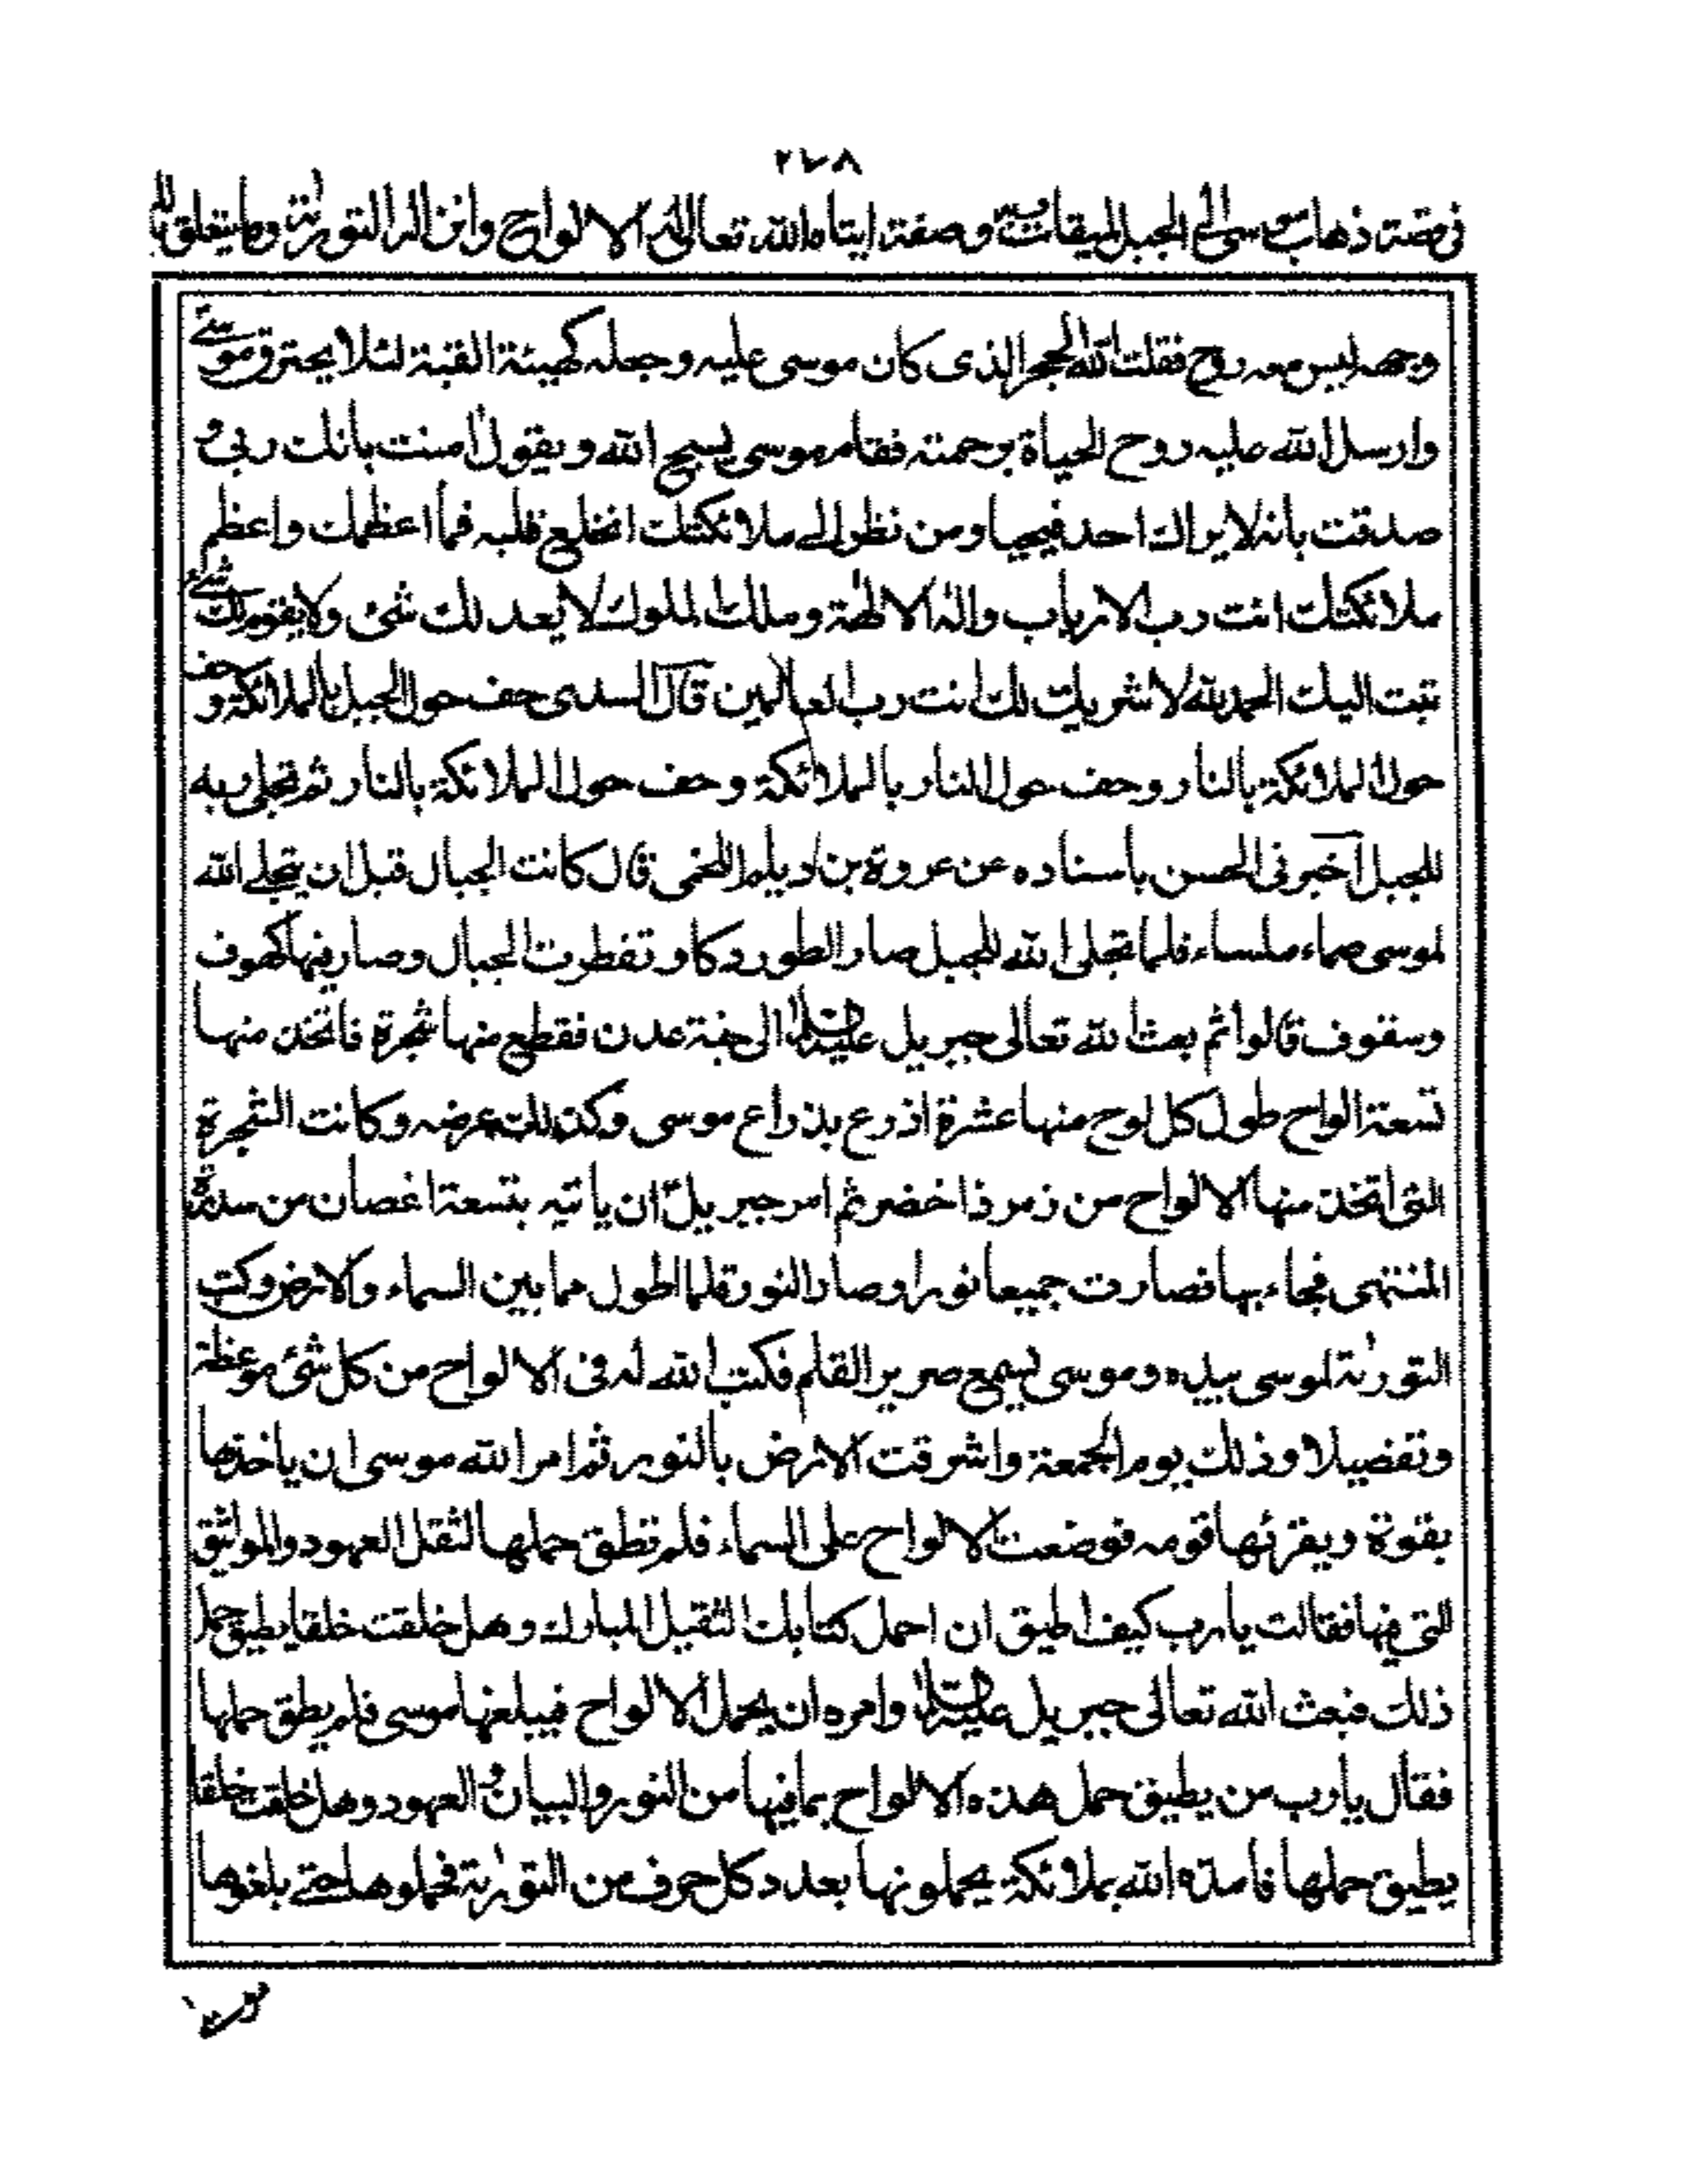 ٢٧٨
فى قصة ذهاب موسى الى الجبل لميقات ربه وصفة ايتاء الله تعالى له الالواح وانزاله التوراية وما يتعلق
وجهه ليس معه روح فقلب الله الحجر الذى كان موسى عليه وجعله كهيئة القبة لئلا يحترق موسى
وارسل الله عليه روح الحياة برحمته فقام موسى يسبح الله ويقول امنت بانك ربى و
صدقت بانه لا يراك احد فيحيا ومن نظر الى ملائكتك انخلع قلبه فما اعظمك واعظم
ملائكتك انت رب الارباب واله الالهة وملك الملوك لا يعدلك شئ ولا يقوم لك شئ
تبت اليك الحمد لله لا شريك لك انت رب العالمين قال السدى حف حول الجبل بالملائكة وحف
حول الملائكة بالنار وحف حول النار بالملائكة وحف حول الملائكة بالنار ثم تجلى ربه
للجبل اخبرنى الحسن باسناده عن عروة بن اديلم اللخمى قال كانت الجبال قبل ان يتجلى الله
لموسى صماء ملساء فلما تجلى الله للجبل صار الطور دكا وتفطرت الجبال وصار فيها كهوف
وسقوف قالوا ثم بعث الله تعالى جبريل عليه السلام الى جنة عدن فقطع منها شجرة فاتخذ منها
تسعة الواح طول كل لوح منها عشرة اذرع بذراع موسى وكذلك عرضه وكانت الشجرة
التى اتخذ منها الالواح من زمرذ اخضر ثم امر جبريل ان ياتيه بتسعة اغصان من سدرة
المنتهى فجاء بها فصارت جميعا نورا وصار النور قلما اطول مما بين السماء والارض وكتب
التورية لموسى بيده وموسى يسمع صرير القلم فكتب الله له فى الالواح من كل شئ موعظة
وتفصيلا وذلك يوم الجمعة واشرقت الارض بالنور ثم امر الله موسى ان ياخذها
بقوة ويقرئها قومه فوضعت الالواح على السماء فلم تطق حملها لثقل العهود والمواثيق
التى فيها فقالت يا رب كيف اطيق ان احمل كتابك الثقيل المبارك وهل خلقت خلقا يطيق حمل
ذلك فبعث الله تعالى جبريل عليه السلام وامره ان يحمل الالواح فيبلغها موسى فلم يطق حملها
فقال يا رب من يطيق حمل هذه الالواح بما فيها من النور والبيان و العهود وهل خلقت خلقا
يطيق حملها فامده الله بملائكة يحملونها بعدد كل حرف من التورية فحملوها حتى بلغوها